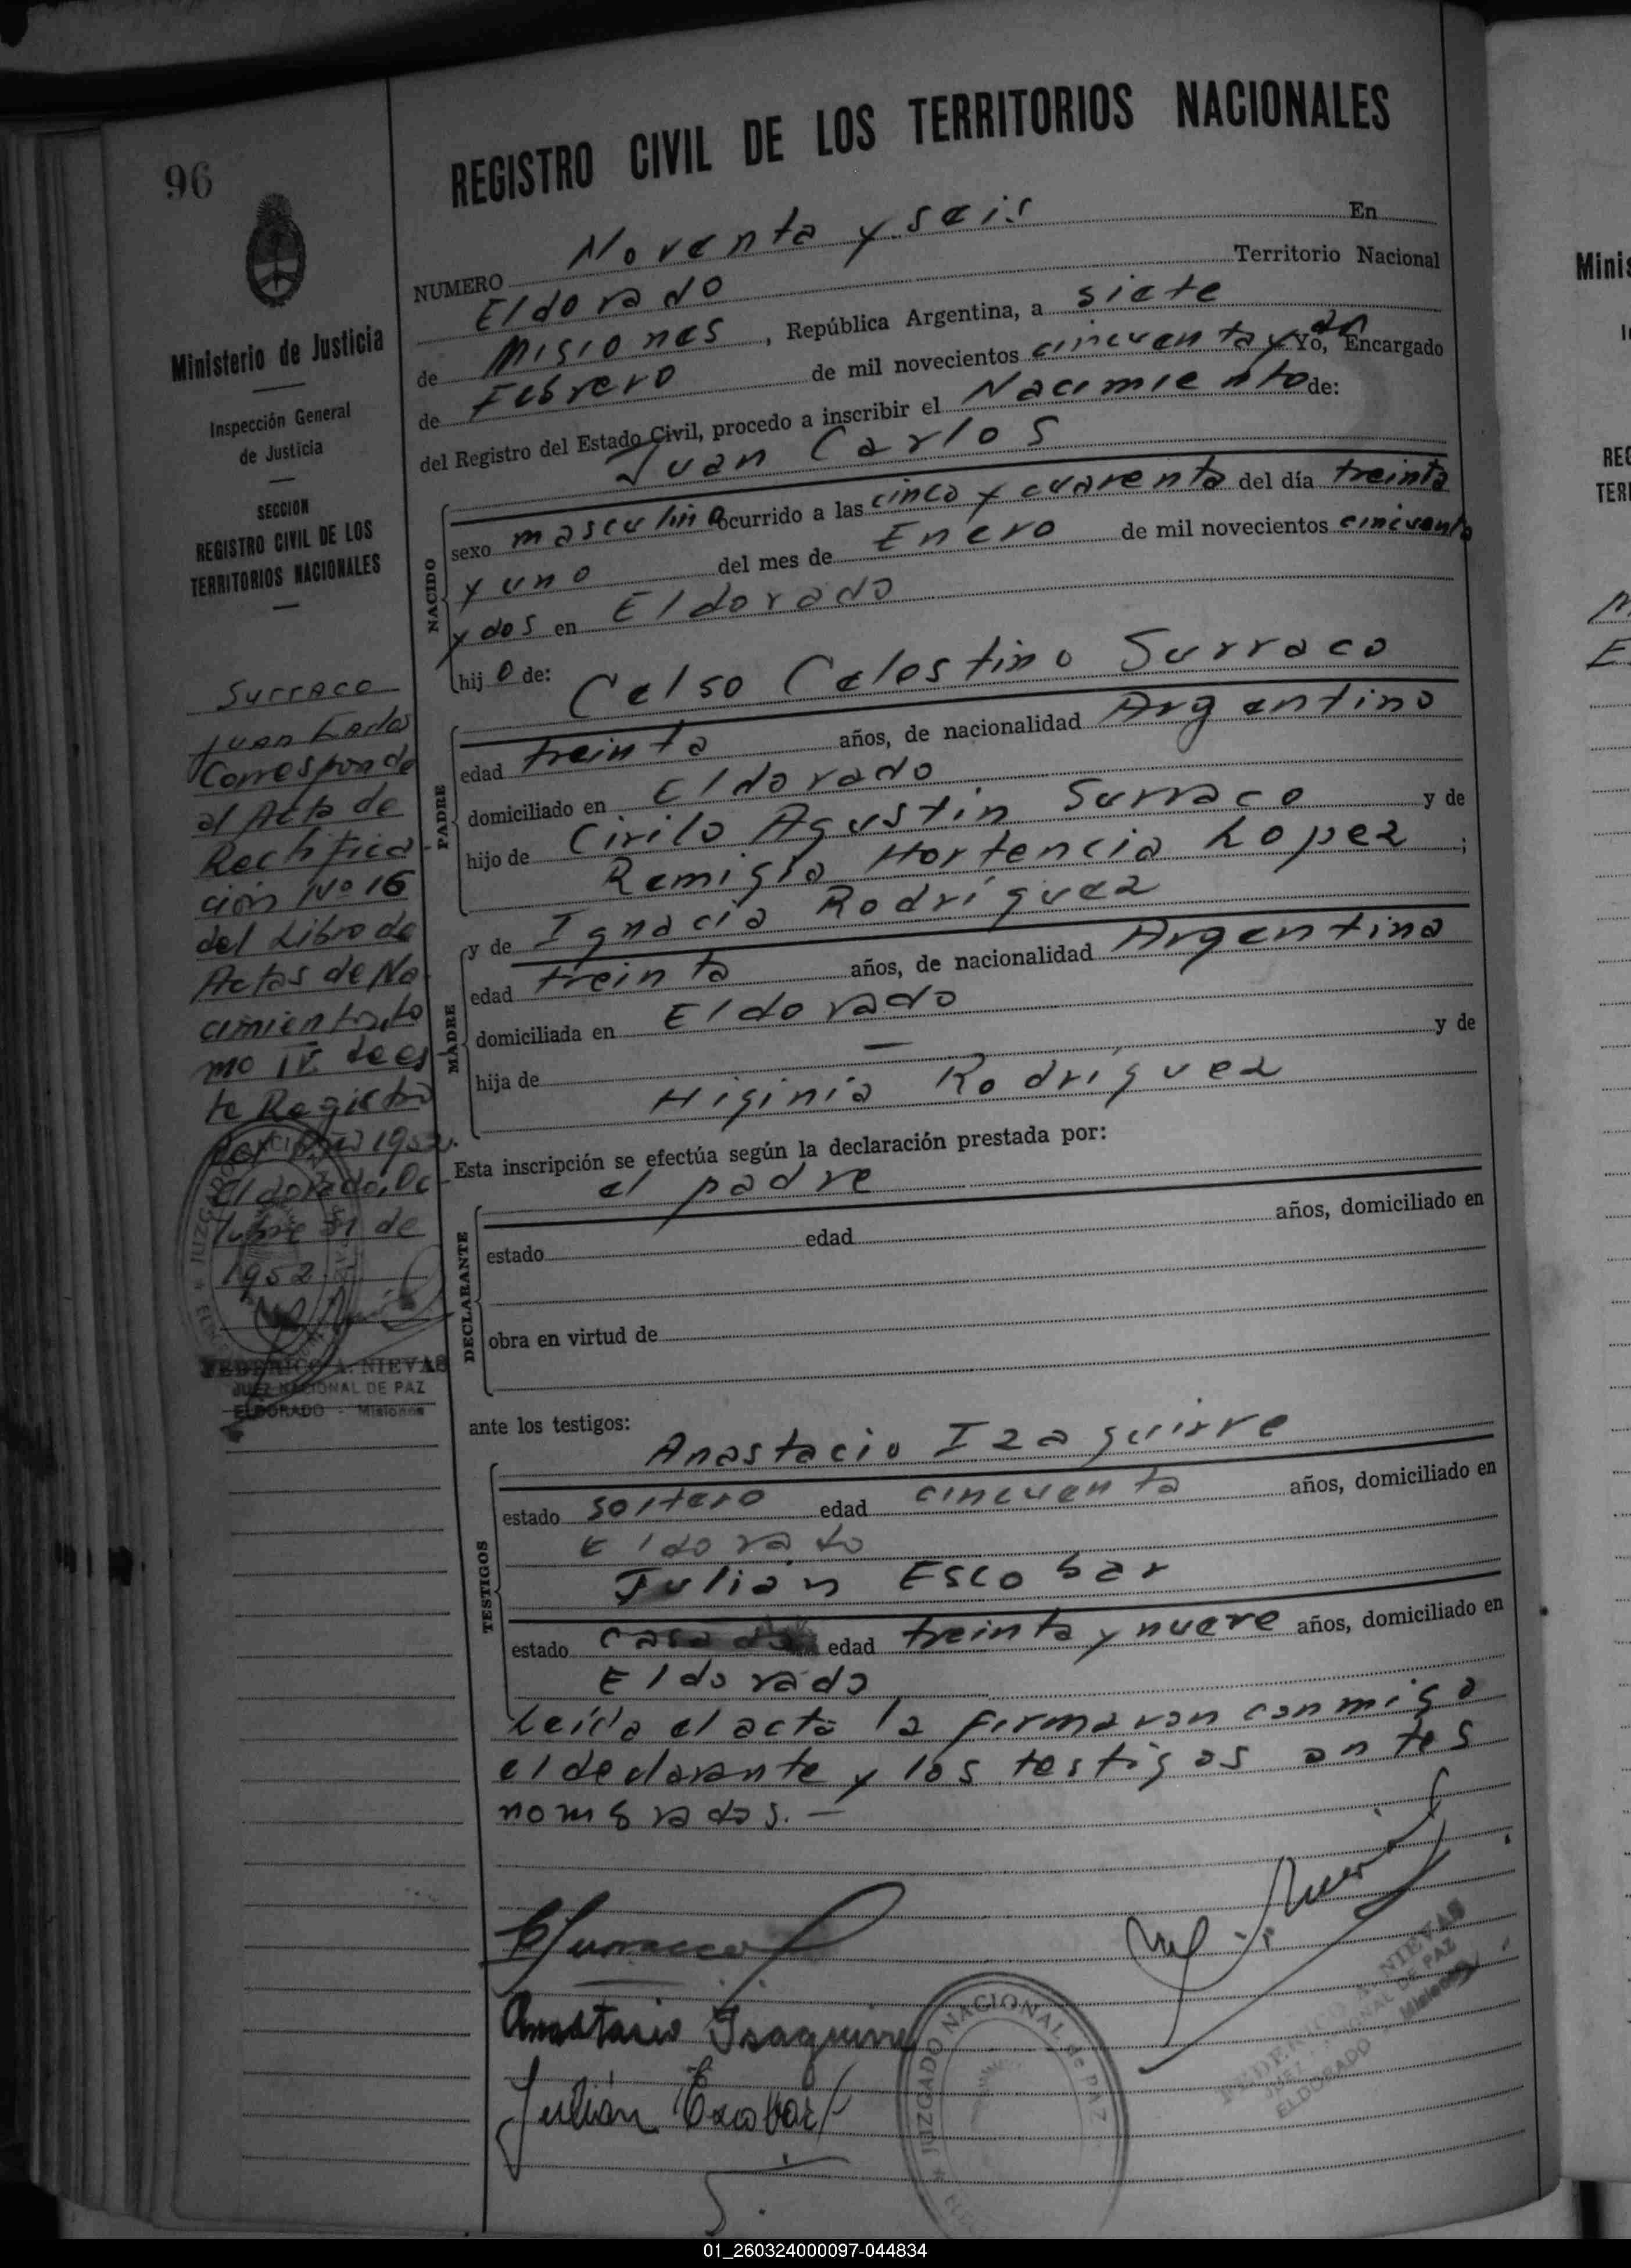 96
REGISTRO CIVIL DE LOS TERRITORIOS NACIONALES
NUMERO Noventa y seis En
Eldorado Territorio Nacional
de Misiones, República Argentina, a siete
de Febrero de mil novecientos cincuenta y Yo, Encargado
del Registro del Estado Civil, procedo a inscribir el Nacimiento de:
Juan Carlos
NACIDO
sexo masculino ocurrido a las cinco y cuarenta del día treinta
y uno del mes de Enero de mil novecientos cincuenta
y dos en Eldorado
hijo de: Celso Celestino Surraco
PADRE
edad treinta años, de nacionalidad Argentino
domiciliado en Eldorado
hijo de Cirilo Agustin Surraco y de
Remigia Hortencia Lopez ;
y de Ignacia Rodríguez
MADRE
edad treinta años, de nacionalidad Argentina
domiciliada en Eldorado
hija de — y de
Higinia Rodríguez
Esta inscripción se efectúa según la declaración prestada por:
el padre
DECLARANTE
estado edad años, domiciliado en
obra en virtud de
ante los testigos:
Anastacio Izaguirre
TESTIGOS
estado soltero edad cincuenta años, domiciliado en
Eldorado
Julián Escobar
estado casado edad treinta y nueve años, domiciliado en
Eldorado
Leída el acta la firmaron conmigo
el declarante y los testigos antes
nombrados. —
Surraco
Anastacio Isaguirre
Julián Escobar
JUZGADO NACIONAL de PAZ
FEDERICO A. NIEVAS
JUEZ NACIONAL DE PAZ
ELDORADO - Misiones
Ministerio de Justicia
Inspección General
de Justicia
SECCION
REGISTRO CIVIL DE LOS
TERRITORIOS NACIONALES
Surraco
Juan Carlos
Corresponde
al Acta de
Rectifica-
ción Nº 16
del Libro de
Actas de Na
cimientos, to
mo IV de es-
te Registro
1952.
Eldorado, Oc
tubre 31 de
1952.-
FEDERICO A. NIEVAS
JUEZ NACIONAL DE PAZ
ELDORADO - Misiones
Minis
REG
TERI
01_260324000097-044834